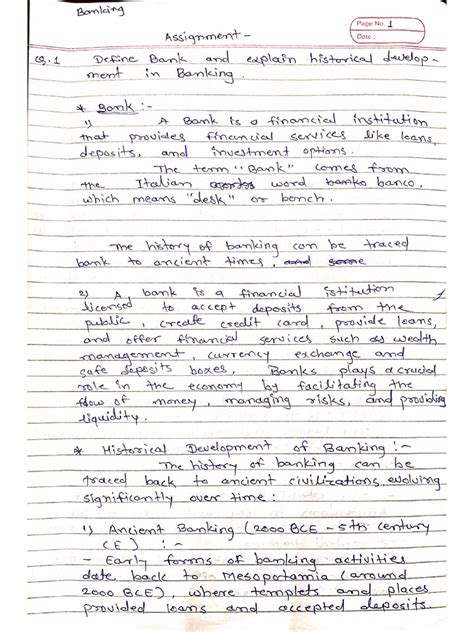 Banking
Page No. 1
Date :
Assignment -
Q.1 Define Bank and explain historical develop-
ment in Banking.
* Bank :-
1) A Bank is a financial institution
that provides financial services like loans,
deposits, and investment options.
The term "Bank" comes from
the Italian word banko banco,
which means "desk" or bench.
The history of banking can be traced
bank to ancient times, and some
2) A bank is a financial istitution
licensed to accept deposits from the
public, create credit card, provide loans,
and offer financial services such as wealth
management, currency exchange and
safe deposits boxes, Banks plays a crucial
role in the economy by facilitating the
flow of money, managing risks, and providing
liquidity.
* Historical Development of Banking :-
The history of banking can be
traced back to ancient civilizations, evolving
significantly over time :
1) Ancient Banking (2000 BCE - 5th century
CE) : -
- Early forms of banking activities
date back to Mesopotamia (around
2000 BCE), where templets and places
provided loans and accepted deposits.